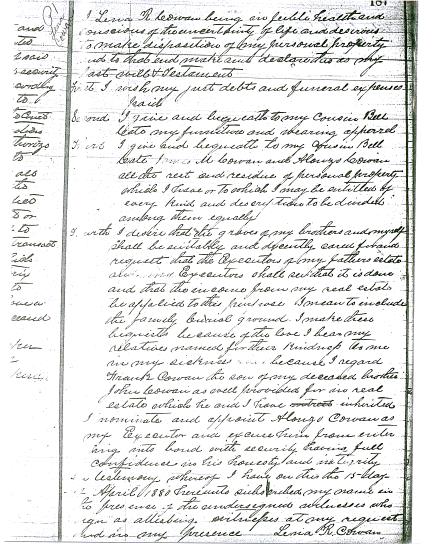 187
I Lenia R. Cowan being in feeble health and
conscious of the uncertainty of life and desirous
to make disposition of my personal property
and to that end make and declare this as my
last will & Testament
First I wish my just debts and funeral expenses
paid
Second I give and bequeath to my Cousin Bell
Cate my furniture and wearing apparel
Third I give and bequeath to my Cousin Bell
Cate M Cowan and Alonzo Cowan
all the rest and residue of personal property
which I have or to which I may be entitled of
every kind and description to be divided
among them equally
Fourth I desire that the graves of my brothers and myself
shall be suitably and decently cared for and
request that the Executors of my fathers estate
and my Executors shall see that it is done
and that the income from my real estate
be applied to this purpose I mean to include
the family burial ground. I make these
bequests because of the love I bear my
relatives named for their kindness to me
in my sickness because I regard
Frank Cowan the son of my deceased brother
John Cowan as well provided for in real
estate which he and I have inherited
I nominate and appoint Alonzo Cowan as
my Executor and excuse him from enter
ing into bond with security having full
confidence in his honesty and integrity
In testimony whereof I have on this the 15 day
April 1880 hereunto subscribed my name in
presence of the undersigned witnesses who
sign as attesting witnesses at my request
and in my presence Lenia R. Cowan